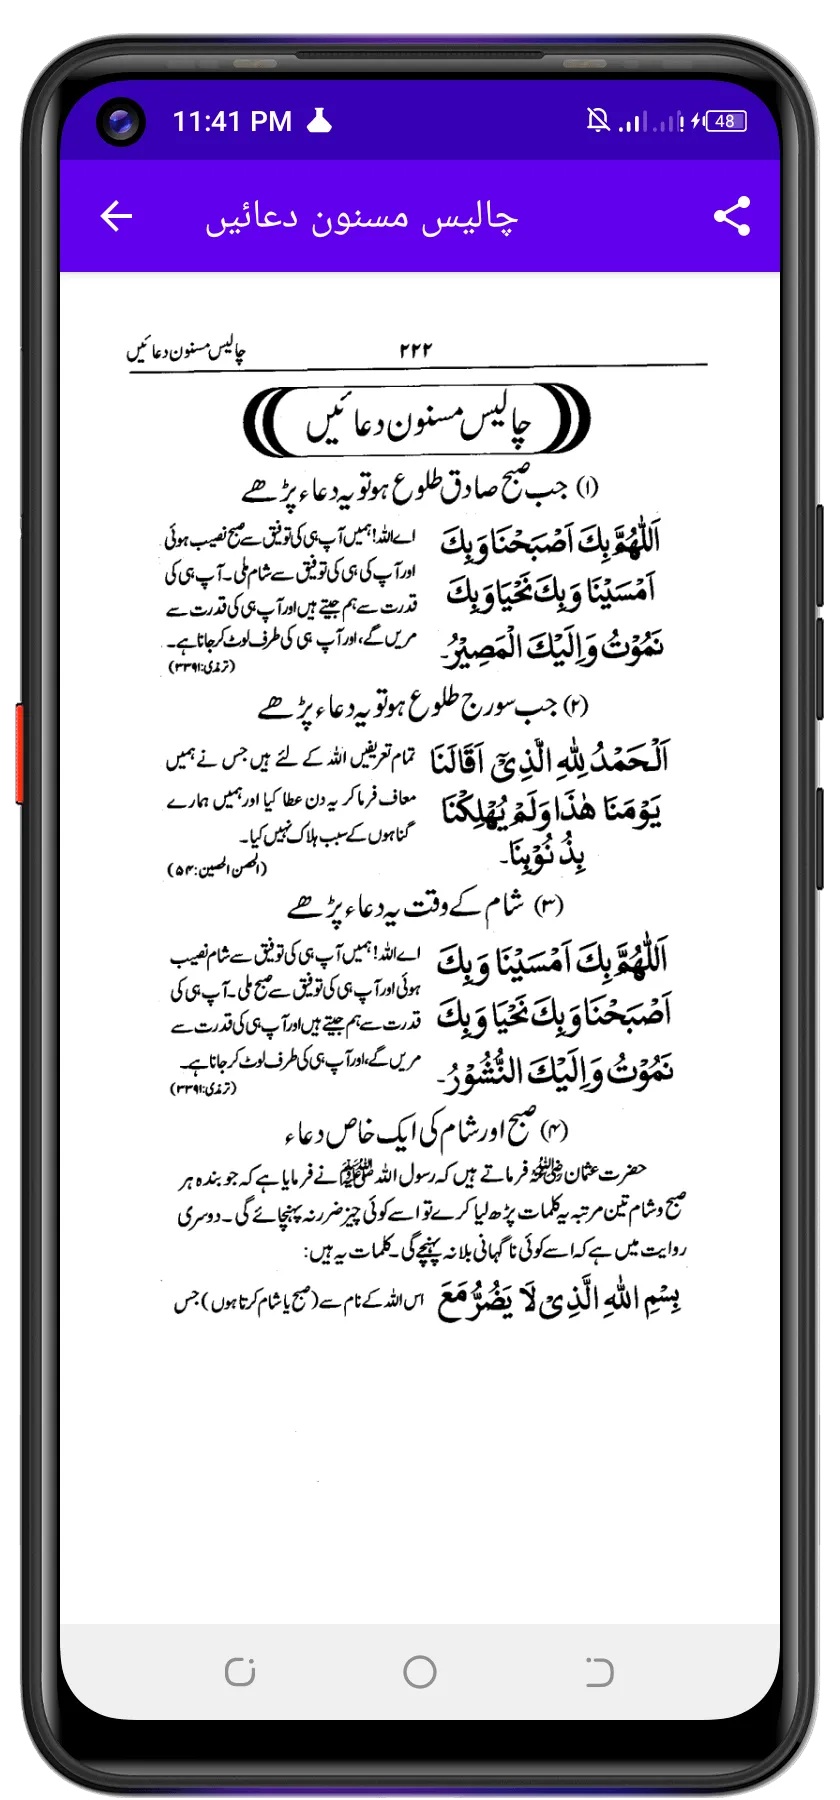 11:41 PM
48
چالیس مسنون دعائیں
چالیس مسنون دعائیں ۲۲۲
چالیس مسنون دعائیں
(۱) جب صبح صادق طلوع ہو تو یہ دعاء پڑھے
اَللّٰهُمَّ بِكَ اَصْبَحْنَا وَبِكَ
اَمْسَيْنَا وَبِكَ نَحْيَا وَبِكَ
نَمُوْتُ وَاِلَيْكَ الْمَصِيْرُ۔
اے اللہ! ہمیں آپ ہی کی توفیق سے صبح نصیب ہوئی
اور آپ کی ہی کی توفیق سے شام ملی۔ آپ ہی کی
قدرت سے ہم جیتے ہیں اور آپ ہی کی قدرت سے
مریں گے، اور آپ ہی کی طرف لوٹ کر جانا ہے۔
(ترمذی: ۳۳۹۱)
(۲) جب سورج طلوع ہو تو یہ دعاء پڑھے
اَلْحَمْدُ لِلّٰهِ الَّذِيْٓ اَقَالَنَا
يَوْمَنَا هٰذَا وَلَمْ يُهْلِكْنَا
بِذُنُوْبِنَا۔
تمام تعریفیں اللہ کے لئے ہیں جس نے ہمیں
معاف فرما کر یہ دن عطا کیا اور ہمیں ہمارے
گناہوں کے سبب ہلاک نہیں کیا۔
(الحصن الحصین: ۵۴)
(۳) شام کے وقت یہ دعاء پڑھے
اَللّٰهُمَّ بِكَ اَمْسَيْنَا وَبِكَ
اَصْبَحْنَا وَبِكَ نَحْيَا وَبِكَ
نَمُوْتُ وَاِلَيْكَ النُّشُوْرُ۔
اے اللہ! ہمیں آپ ہی کی توفیق سے شام نصیب
ہوئی اور آپ ہی کی توفیق سے صبح ملی۔ آپ ہی کی
قدرت سے ہم جیتے ہیں اور آپ ہی کی قدرت سے
مریں گے، اور آپ ہی کی طرف لوٹ کر جانا ہے۔
(ترمذی: ۳۳۹۱)
(۴) صبح اور شام کی ایک خاص دعاء
حضرت عثمان رضی اللہ عنہ فرماتے ہیں کہ رسول اللہ ﷺ نے فرمایا ہے کہ جو بندہ ہر
صبح و شام تین مرتبہ یہ کلمات پڑھ لیا کرے تو اسے کوئی چیز ضرر نہ پہنچائے گی۔ دوسری
روایت میں ہے کہ اسے کوئی ناگہانی بلا نہ پہنچے گی۔ کلمات یہ ہیں:
بِسْمِ اللهِ الَّذِيْ لَا يَضُرُّ مَعَ
اس اللہ کے نام سے (صبح یا شام کرتا ہوں) جس